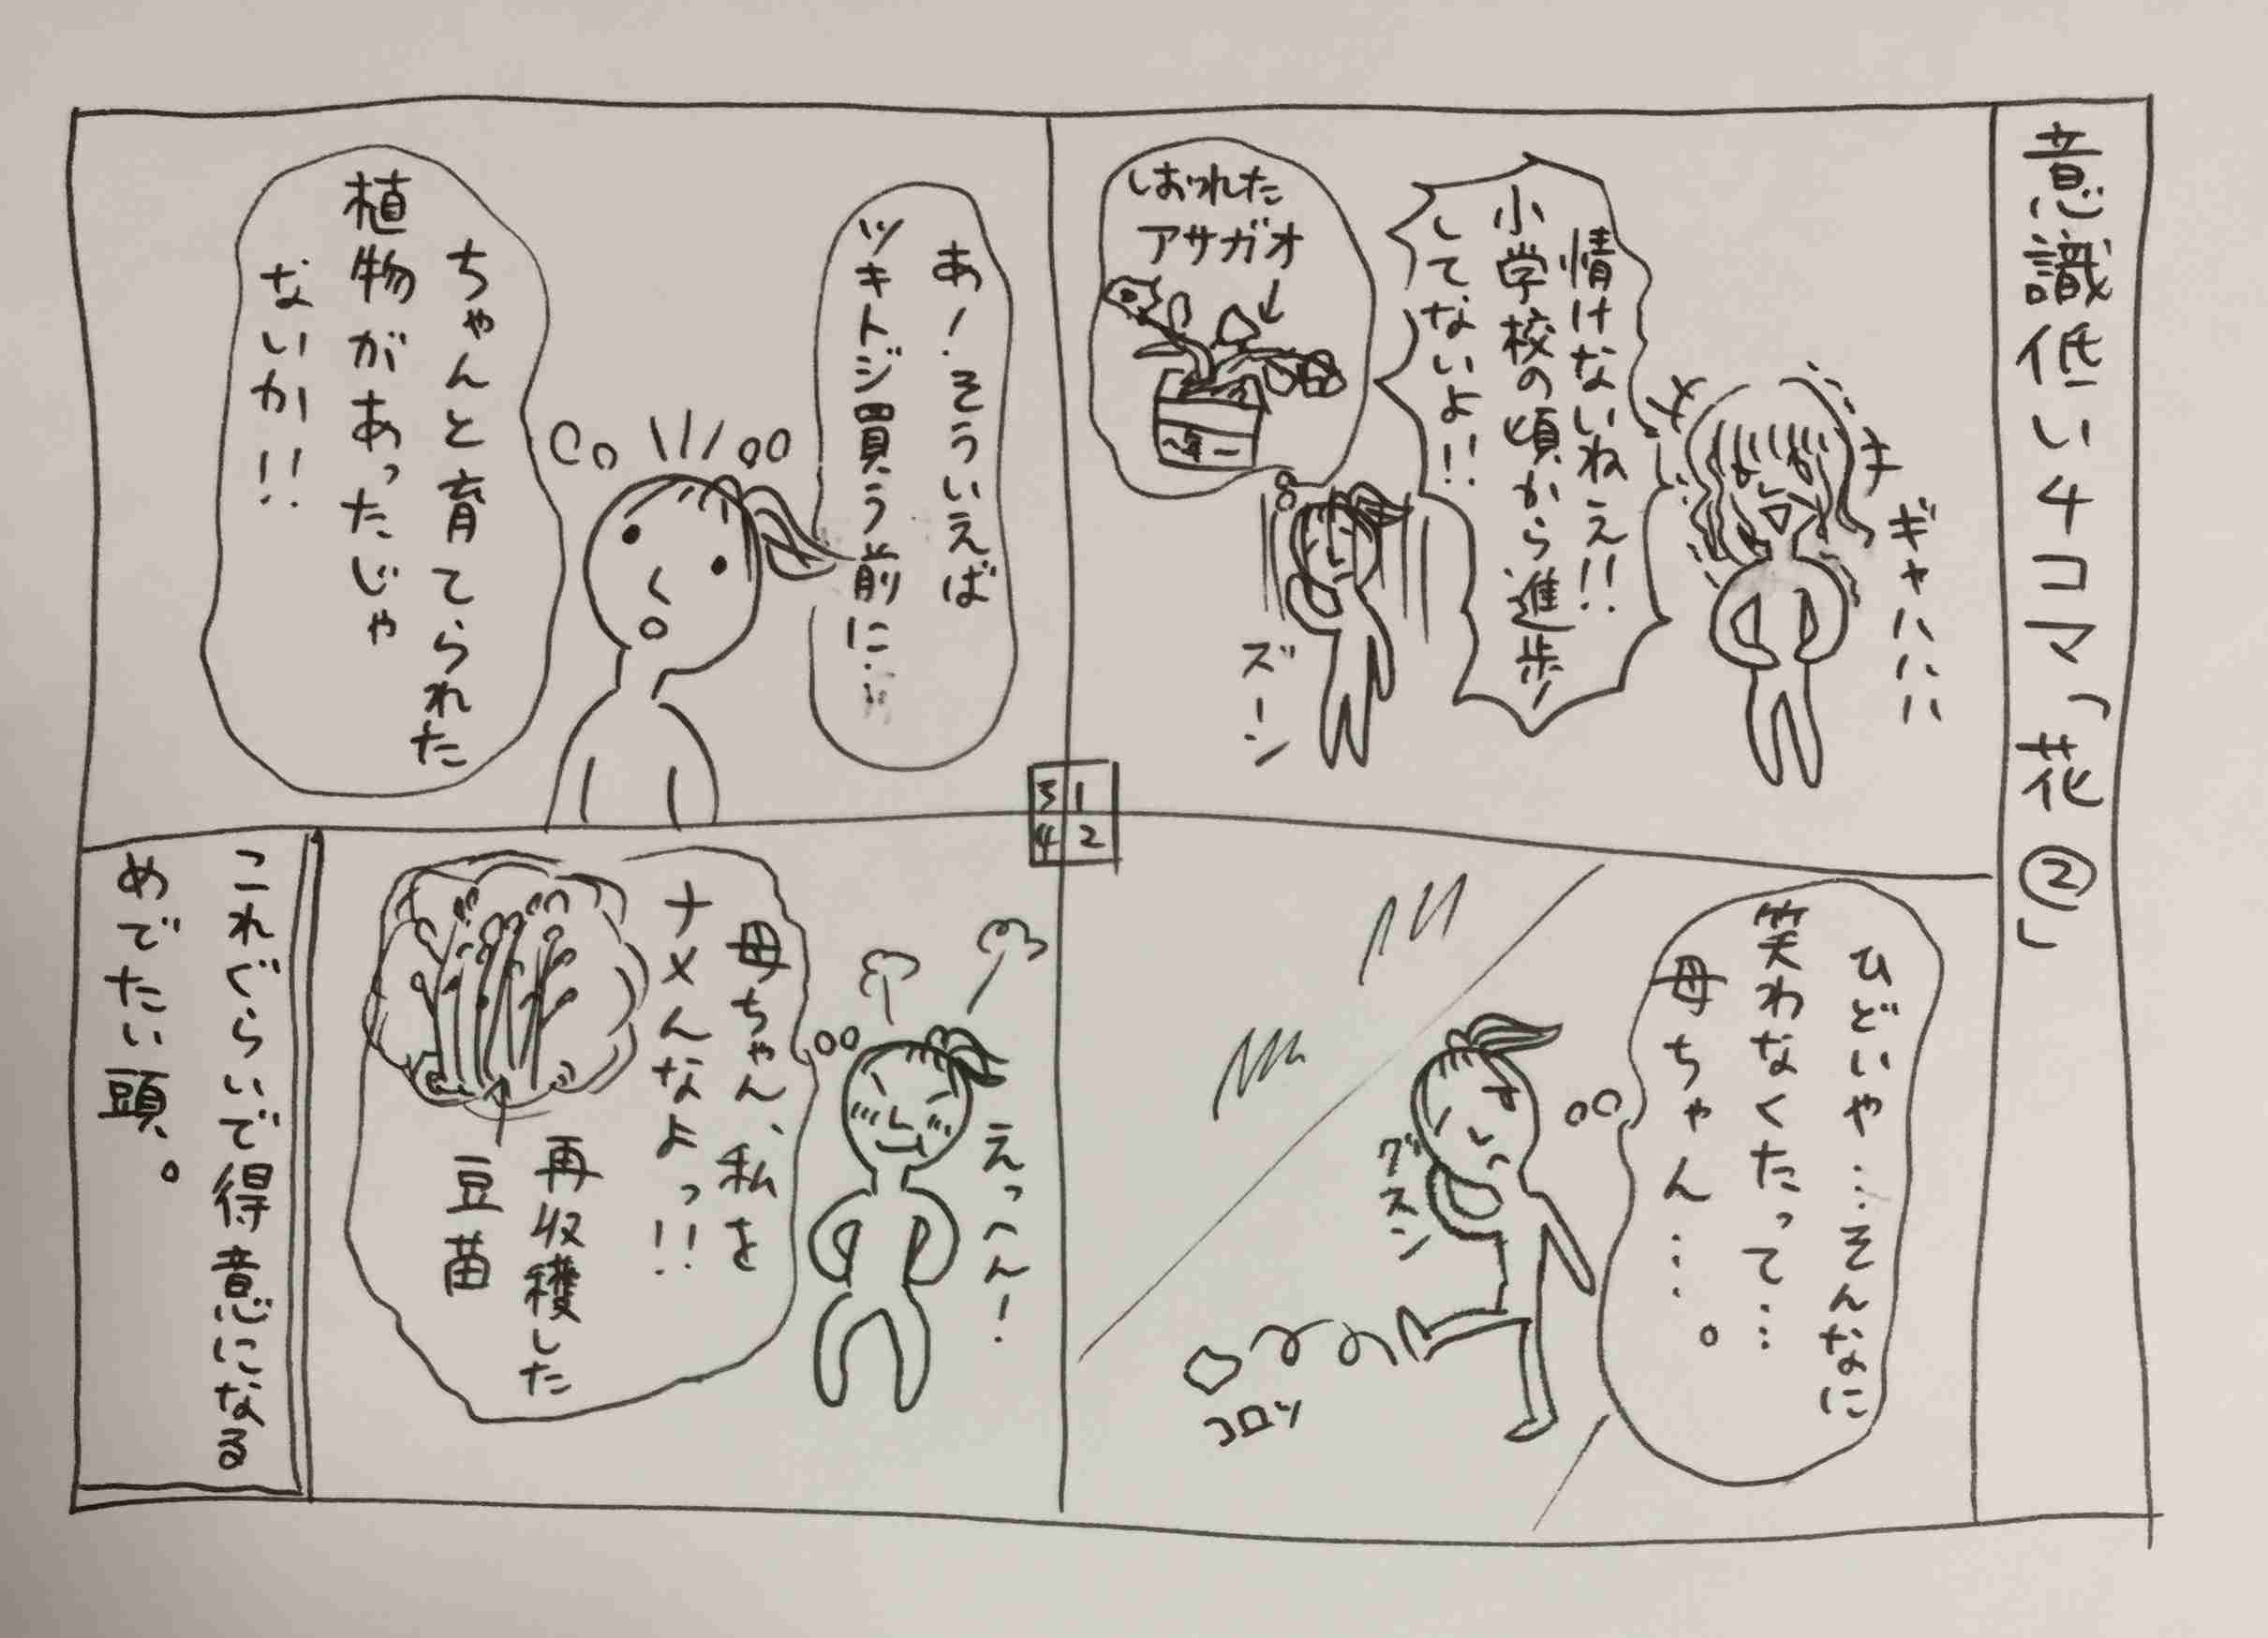 意識低い4コマ「花②」
ギャハハハ
情けないねえ!!
小学校の頃から進歩
してないよ!!
しおれた
アサガオ
ズーン
ひどいや…そんなに
笑わなくたって…
母ちゃん…。
グスン
コロッ
あ!そういえば
ツキトジ買う前に…
ちゃんと育てられた
植物があったじゃ
ないか!!
えっへん!
母ちゃん、私を
ナメんなよっ!!
再収穫した
豆苗
これぐらいで得意になる
めでたい頭。
3 1
4 2